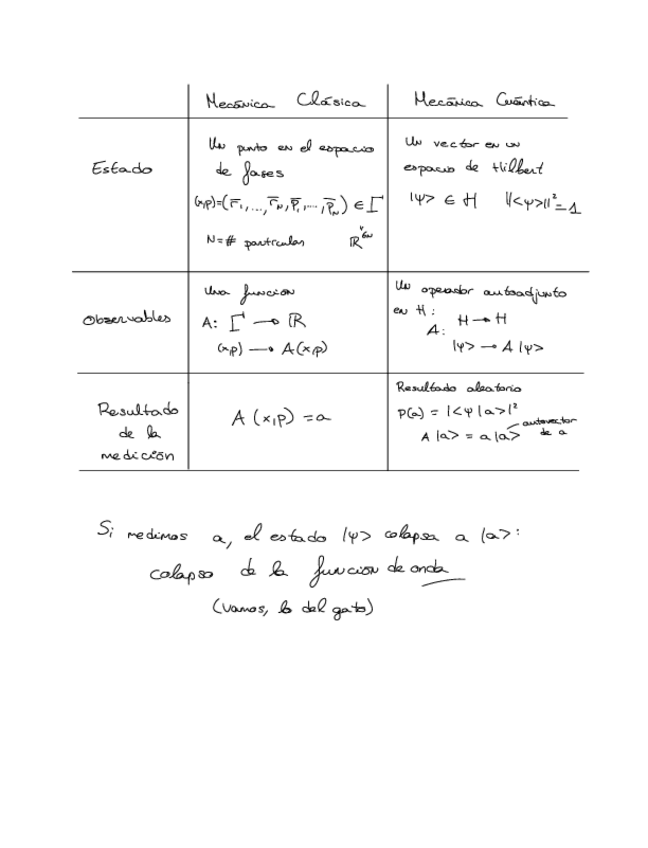 Mecánica Clásica
Mecánica Cuántica
Estado
Un punto en el espacio
de fases
(x,p)=(r̄₁,...,r̄_N,p̄₁,...,p̄_N) ∈ Γ
N=# partículas ℝ^6N
Un vector en un
espacio de Hilbert
|ψ> ∈ H ||<ψ>||²=1
Observables
Una función
A: Γ → ℝ
(x,p) → A(x,p)
Un operador autoadjunto
en H:
A: H → H
|ψ> → A|ψ>
Resultado
de la
medición
A(x,p) = a
Resultado aleatorio
P(a) = |<ψ|a>|²
A|a> = a|a> autovector
de a
Si medimos a, el estado |ψ> colapsa a |a>:
colapso de la función de onda
(vamos, lo del gato)